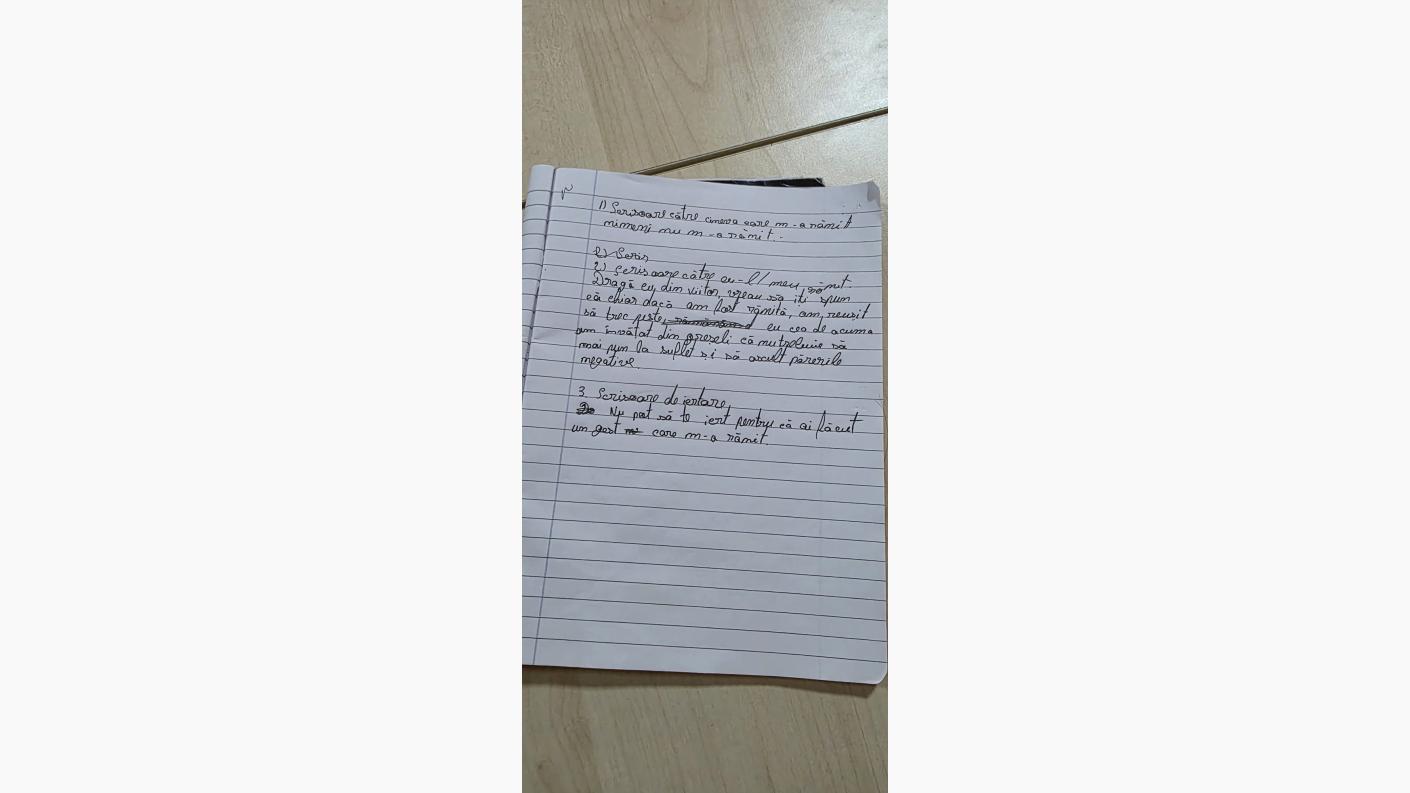 1) Scrisoare către cineva care m-a rănit
nimeni nu m-a rănit.
2) Scris
2) Scrisoare către eu-l/ meu, rănit.
Dragă eu, din viitor, vreau să iti spun
că chiar dacă am fost rănită, am reusit
să trec peste, eu cea de acuma
am învătat din greseli că nu trebuie să
mai pun la suflet si să ascult părerile
negative.
3. Scrisoare de iertare,
Nu pot să te iert pentru că ai făcut
un gest care m-a rănit.